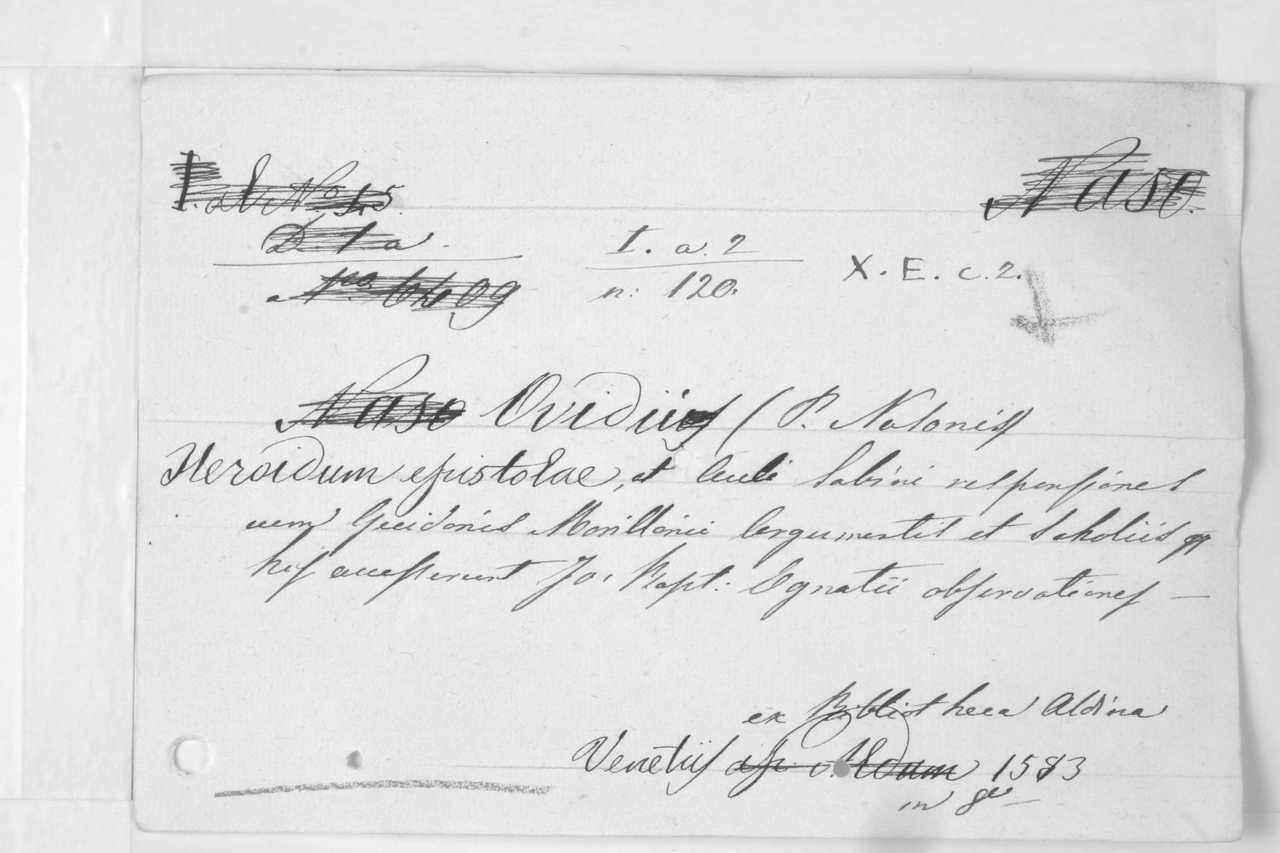 Naso.
D I a.
I. a. 2
n: 120.
X. E. c. 2.
Naso Ovidii (P. Nasonis)
Heroidum epistolae, et Auli Sabini responsiones
cum Guidonis Morillonii Argumentis et Scholiis
his accesserunt Jo. Bapt: Egnatii observationes —
ex Bibliotheca Aldina
Venetiis ap. Aldum 1583
in 8vo